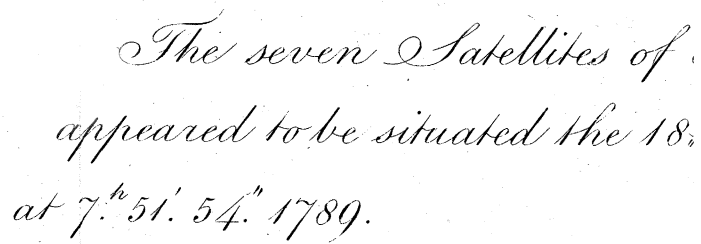 The seven Satellites of
appeared to be situated the 18
at 7.h 51'. 54." 1789.